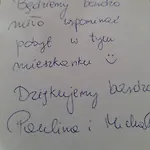 Będziemy bardzo
miło wspominać
pobyt w tym
mieszkaniu ☺
Dziękujemy bardzo
Paulina i Michał